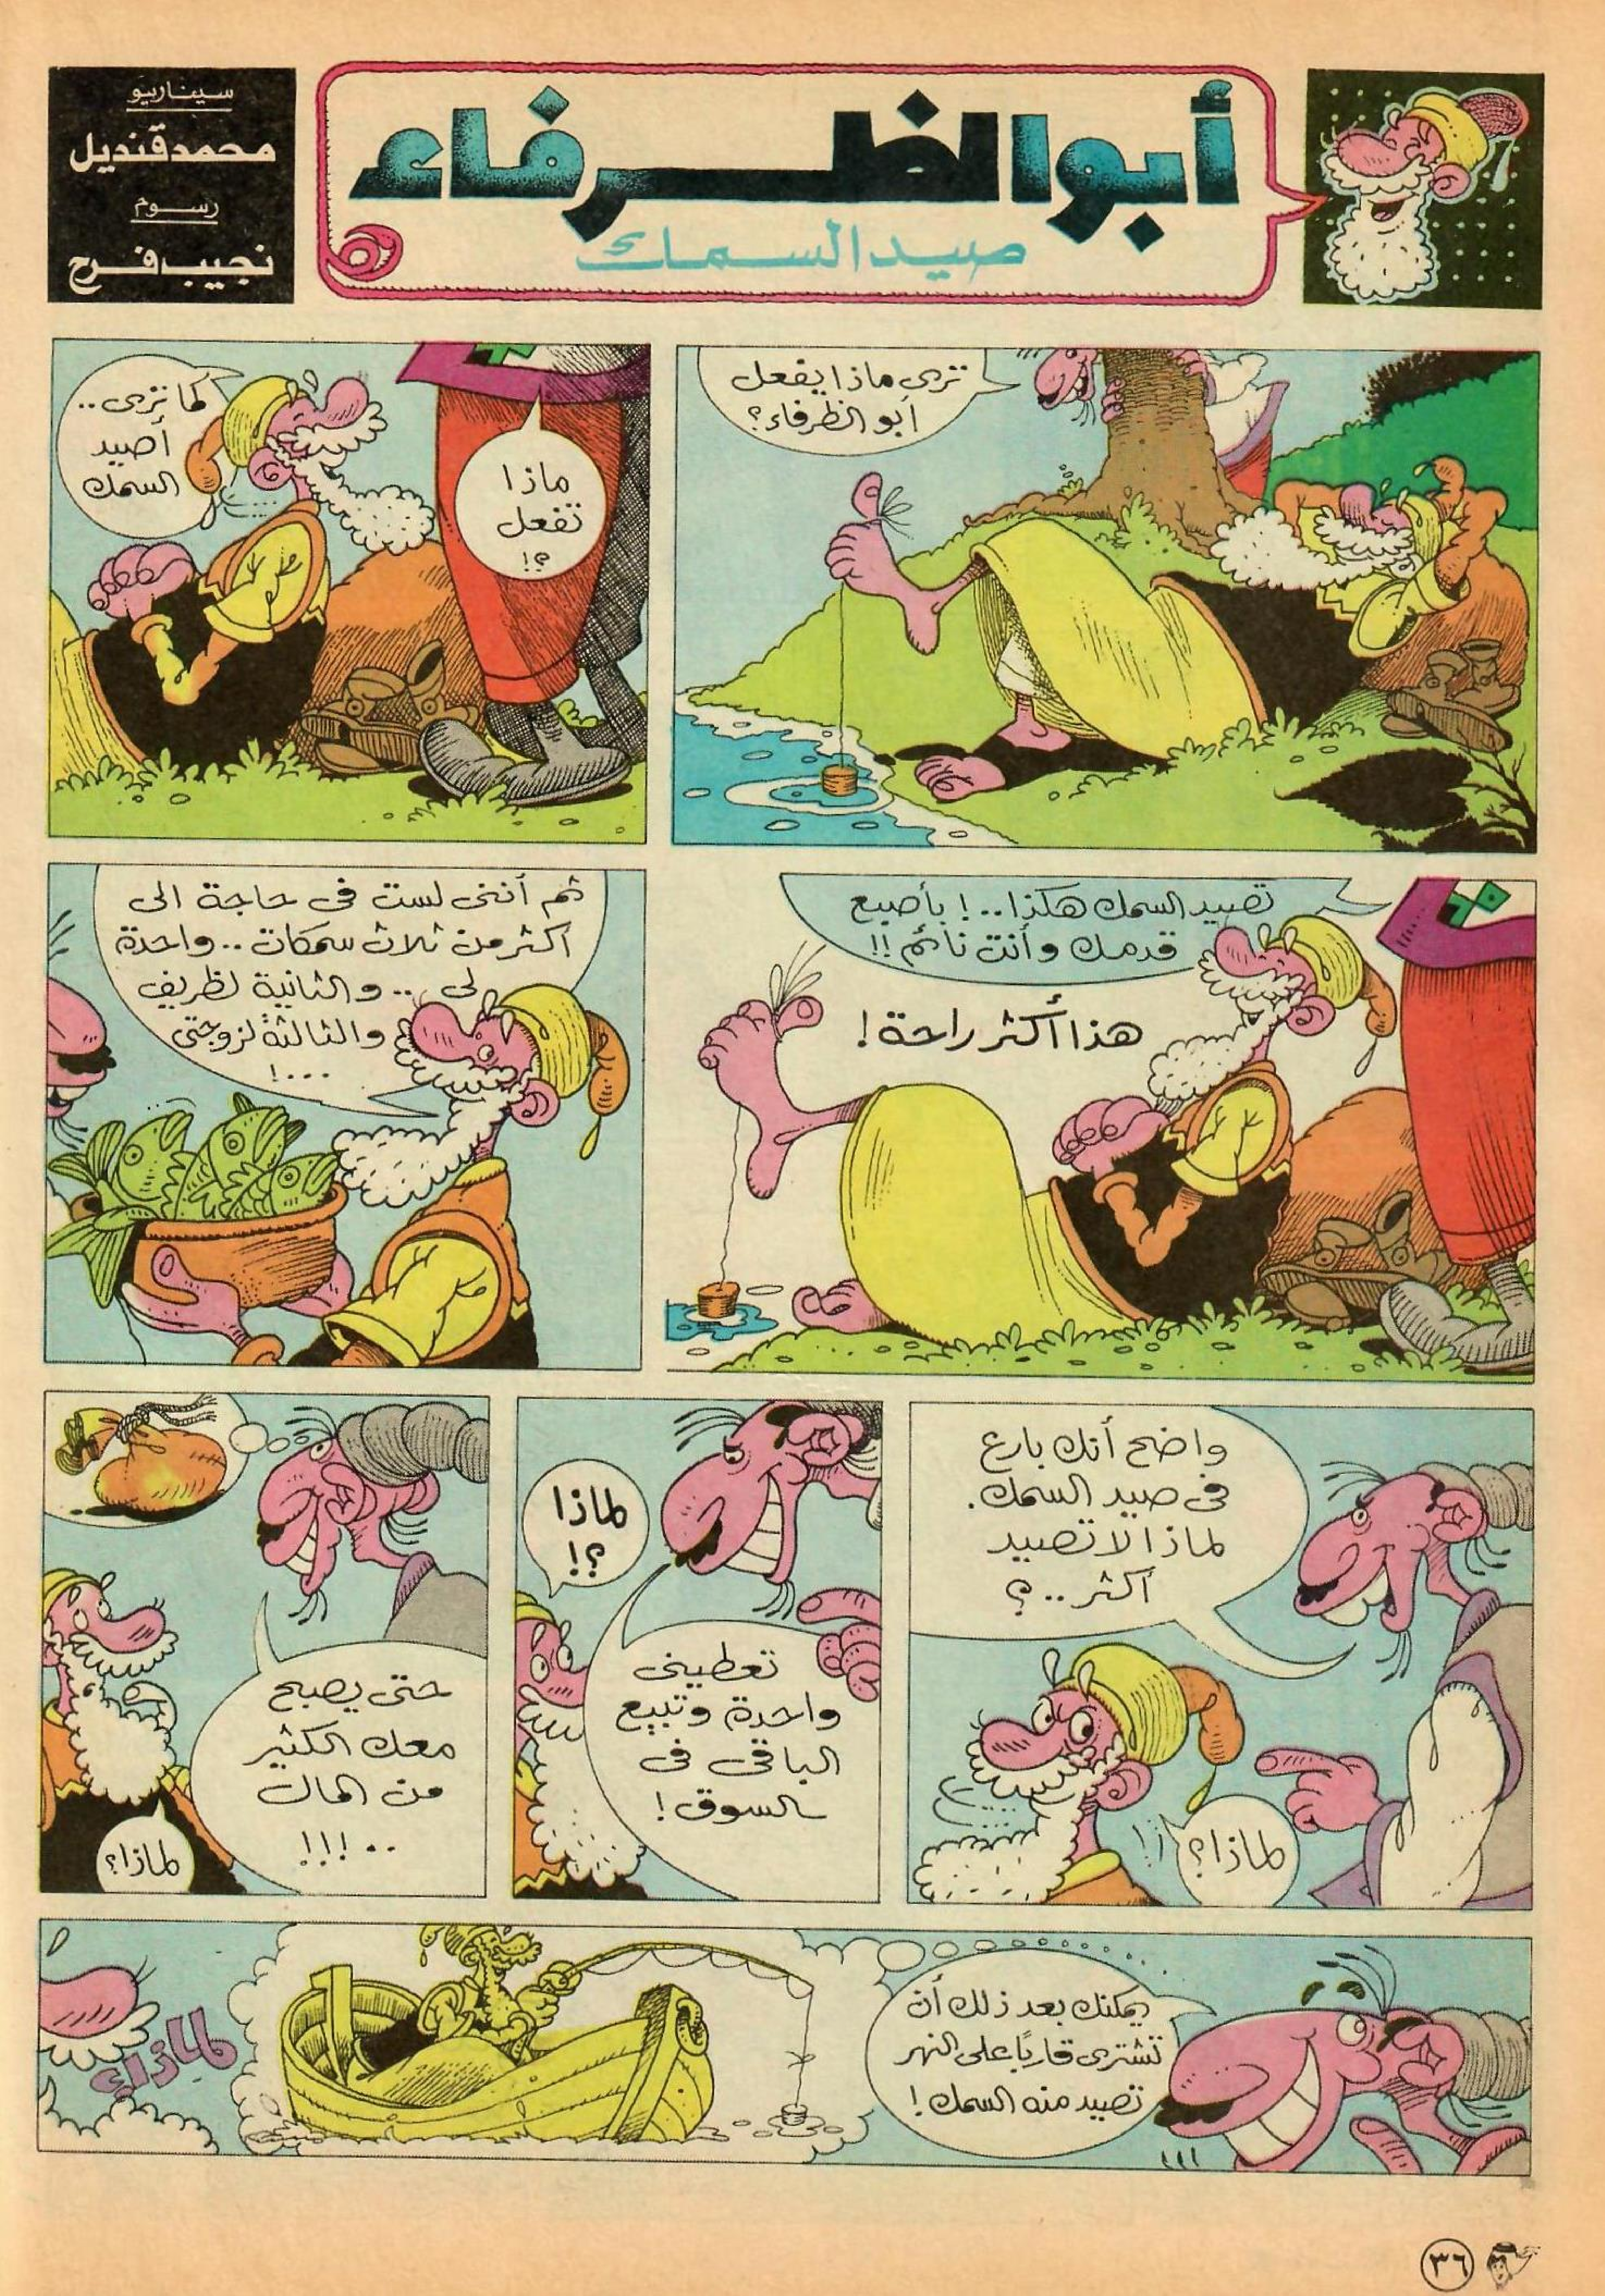 أبو الظرفاء
صيد السمك
سيناريو
محمد قنديل
رسوم
نجيب فرح
ترى ماذا يفعل
أبو الظرفاء؟
ماذا
تفعل
؟!
كما ترى..
أصيد
السمك
تصيد السمك هكذا..! بأصبع
قدمك وأنت نائم!!
هذا أكثر راحة!
ثم أننى لست فى حاجة الى
أكثر من ثلاث سمكات.. واحدة
لى.. والثانية لظريف
والثالثة لزوجتى
...!
واضح أنك بارع
فى صيد السمك.
لماذا لا تصيد
أكثر..؟
لماذا؟
لماذا
؟!
تعطينى
واحدة وتبيع
الباقى فى
السوق!
حتى يصبح
معك الكثير
من المال
..!!!
لماذا؟
يمكنك بعد ذلك أن
تشترى قاربًا على النهر
تصيد منه السمك!
لماذا؟
٣٦